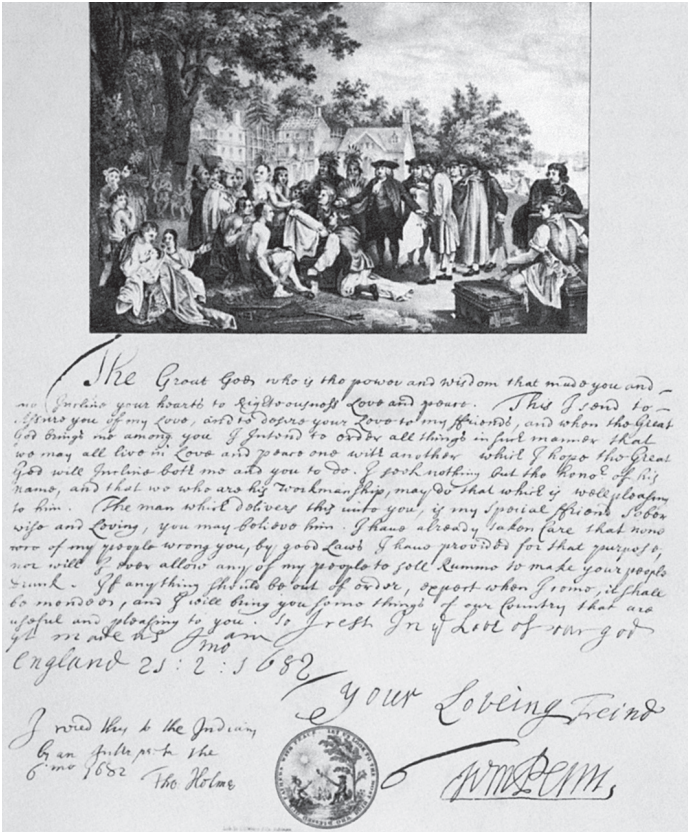 The Great God who is the power and wisdom that made you and
me Incline your hearts to Righteousness Love and peace. This I send to
Assure you of my Love, and to desire your Love to my ffriends, and when the Great
God brings me among you I Intend to order all things in such manner that
we may all live in Love and peace one with another which I hope the Great
God will Incline both me and you to do. I seek nothing but the honor of his
name, and that we who are his workmanship, may do that which is well pleasing
to him. The man which delivers this unto you, is my Special ffriend Sober
wise and Loving, you may believe him. I have already taken Care that none
of my people wrong you, by good Laws I have provided for that purpose,
nor will I ever allow any of my people to sell Rumme to make your people
Drunk. If anything should be out of order, expect when I come, it shall
be mended, and I will bring you some things of our Country that are
useful and pleasing to you. So I rest In ye Love of our god
yt made us I am
mo
England 21:2:1682
Your Loveing Freind
I read this to the Indians
by an the
6 mo 1682
Tho Holme
Wm Penn